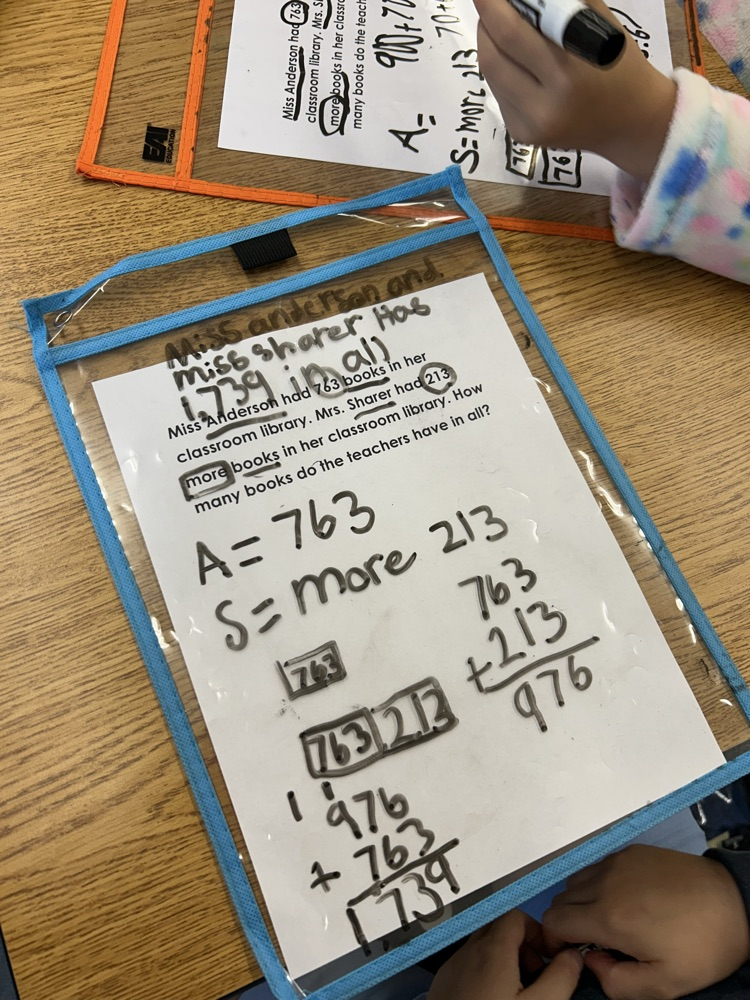 Miss Anderson had 763
classroom library. Mrs.
more books in her classro
many books do the teachers
A= 900+70
S=more 213 70+
763
EAI
EDUCATION
Miss anderson and
miss sharer Has
1,739 in all
Miss Anderson had 763 books in her
classroom library. Mrs. Sharer had 213
more books in her classroom library. How
many books do the teachers have in all?
A= 763
S= more 213
763
+213
976
763
763 213
11
976
+ 763
1,739